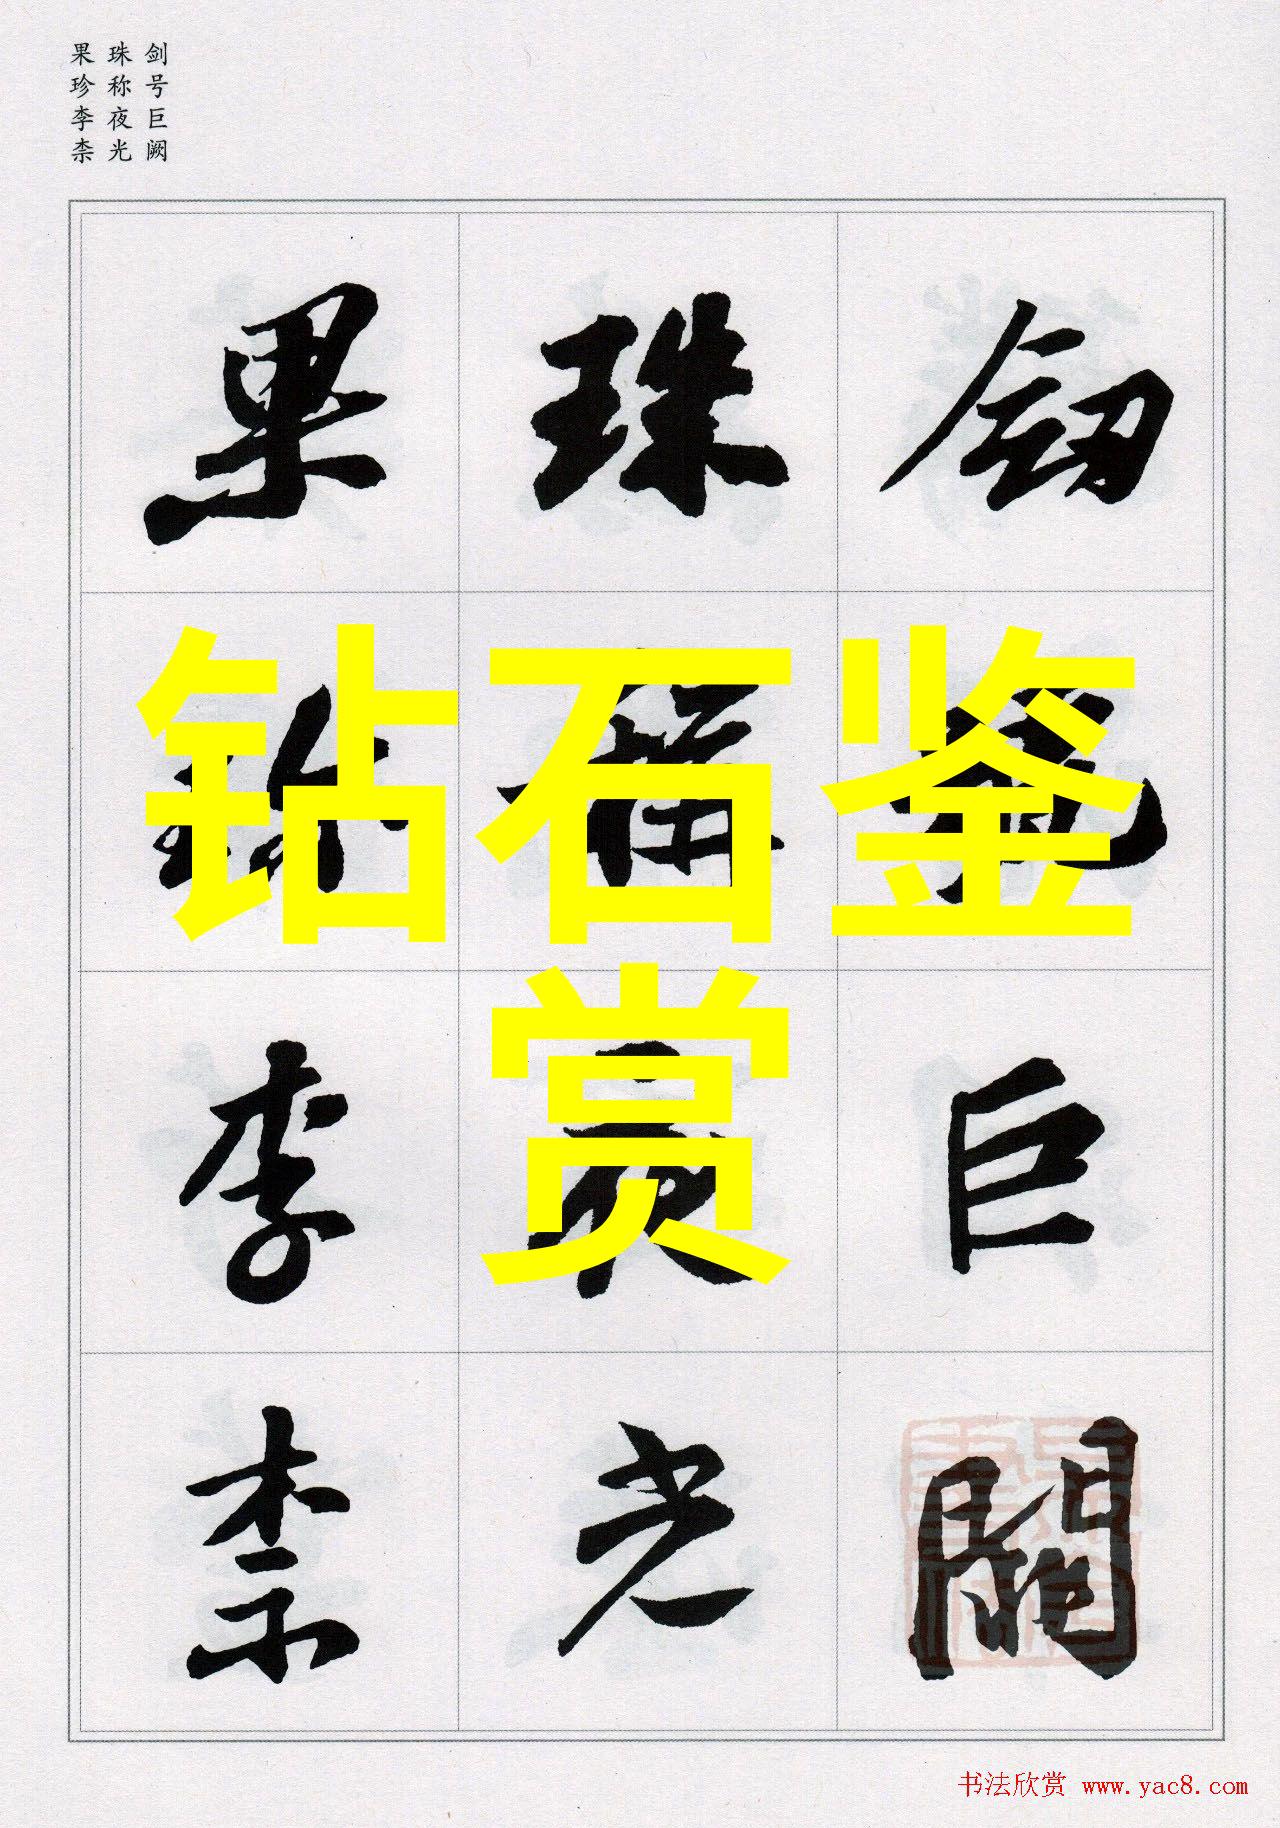 剑号巨阙
珠称夜光
果珍李柰
釼號巨闕
珠稱夜光
果珍李柰
钻石鉴
赏
书法欣赏 www.yac8.com